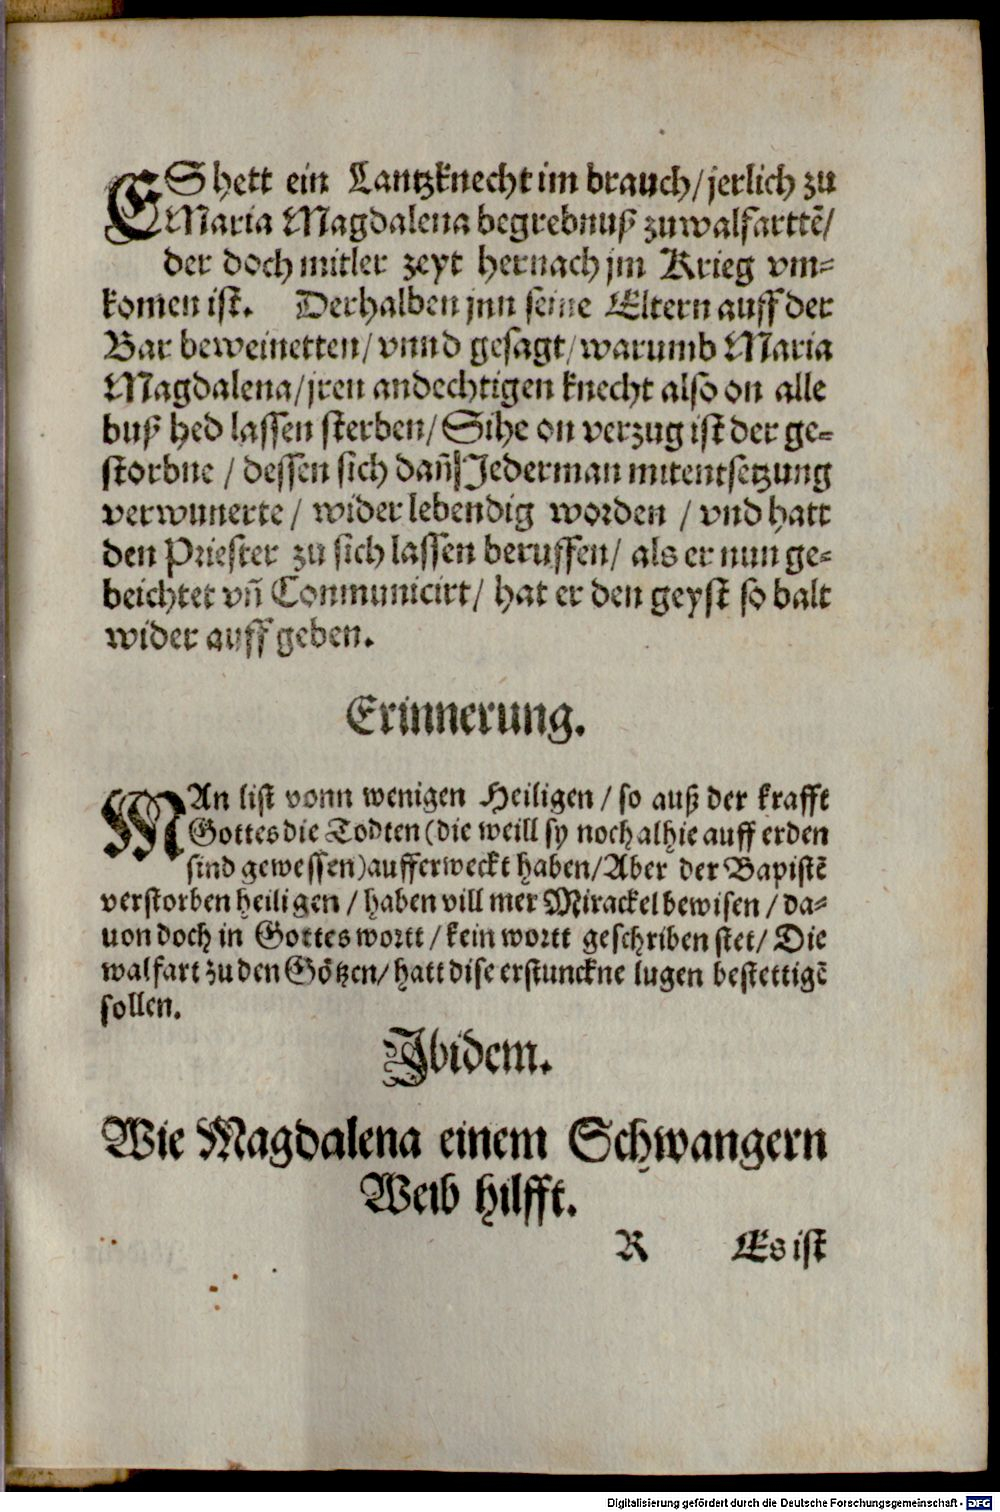 ES hett ein Lantzknecht im brauch/ jerlich zu
Maria Magdalena begrebnuß zuwalfarttē/
der doch mitler zeyt hernach jm Krieg vm⸗
komen ist. Derhalben jnn seine Eltern auff der
Bar beweinetten/ vnnd gesagt/ warumb Maria
Magdalena/ jren andechtigen knecht also on alle
buß hed lassen sterben/ Sihe on verzug ist der ge⸗
storbne / dessen sich dañ Jederman mitentsetzung
verwunerte/ wider lebendig worden / vnd hatt
den Priester zu sich lassen beruffen/ als er nun ge⸗
beichtet vñ Communicirt/ hat er den geyst so balt
wider auff geben.
Erinnerung.
MAn list vonn wenigen Heiligen / so auß der krafft
Gottes die Todten (die weill sy noch alhie auff erden
sind gewessen) aufferweckt haben/ Aber der Bapistē
verstorben heiligen / haben vill mer Mirackel bewisen / da⸗
uon doch in Gottes wortt / kein wortt geschriben stet/ Die
walfart zu den Götzen/ hatt dise erstunckne lugen bestettigē
sollen.
Jbidem.
Wie Magdalena einem Schwangern
Weib hilfft.
R Es ist
Digitalisierung gefördert durch die Deutsche Forschungsgemeinschaft - DFG